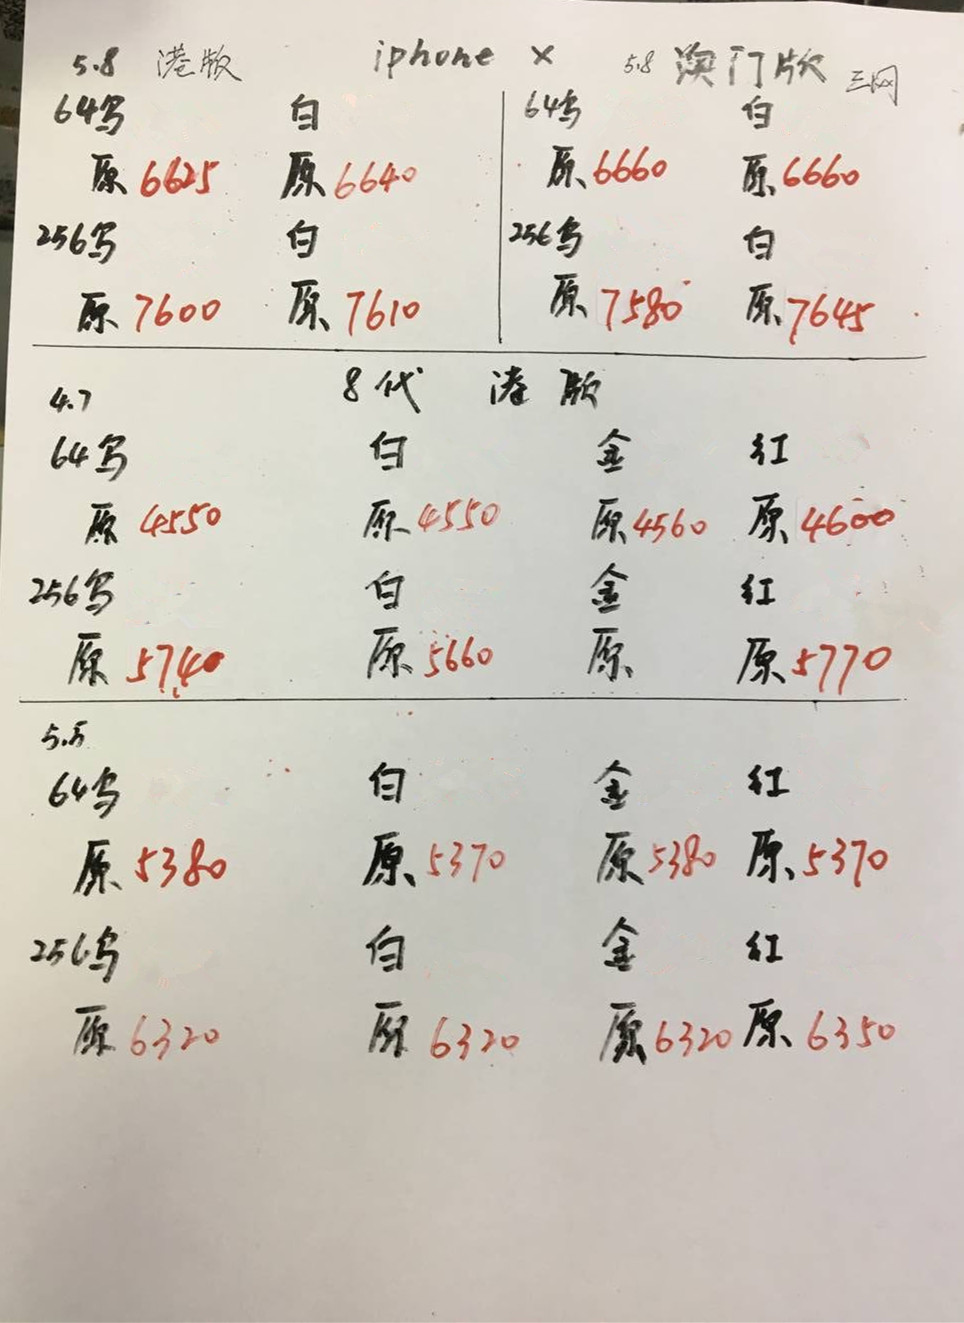 5.8 港版 iphone X 5.8 澳门版 三网
64乌 白 64乌 白
原 6625 原 6640 原 6660 原 6660
256乌 白 256乌 白
原 7600 原 7610 原 7580 原 7645
4.7 8代 港版
64乌 白 金 红
原 4550 原 4550 原 4560 原 4600
256乌 白 金 红
原 5740 原 5660 原 原 5770
5.5
64乌 白 金 红
原 5380 原 5370 原 5380 原 5370
256乌 白 金 红
原 6320 原 6320 原 6320 原 6350